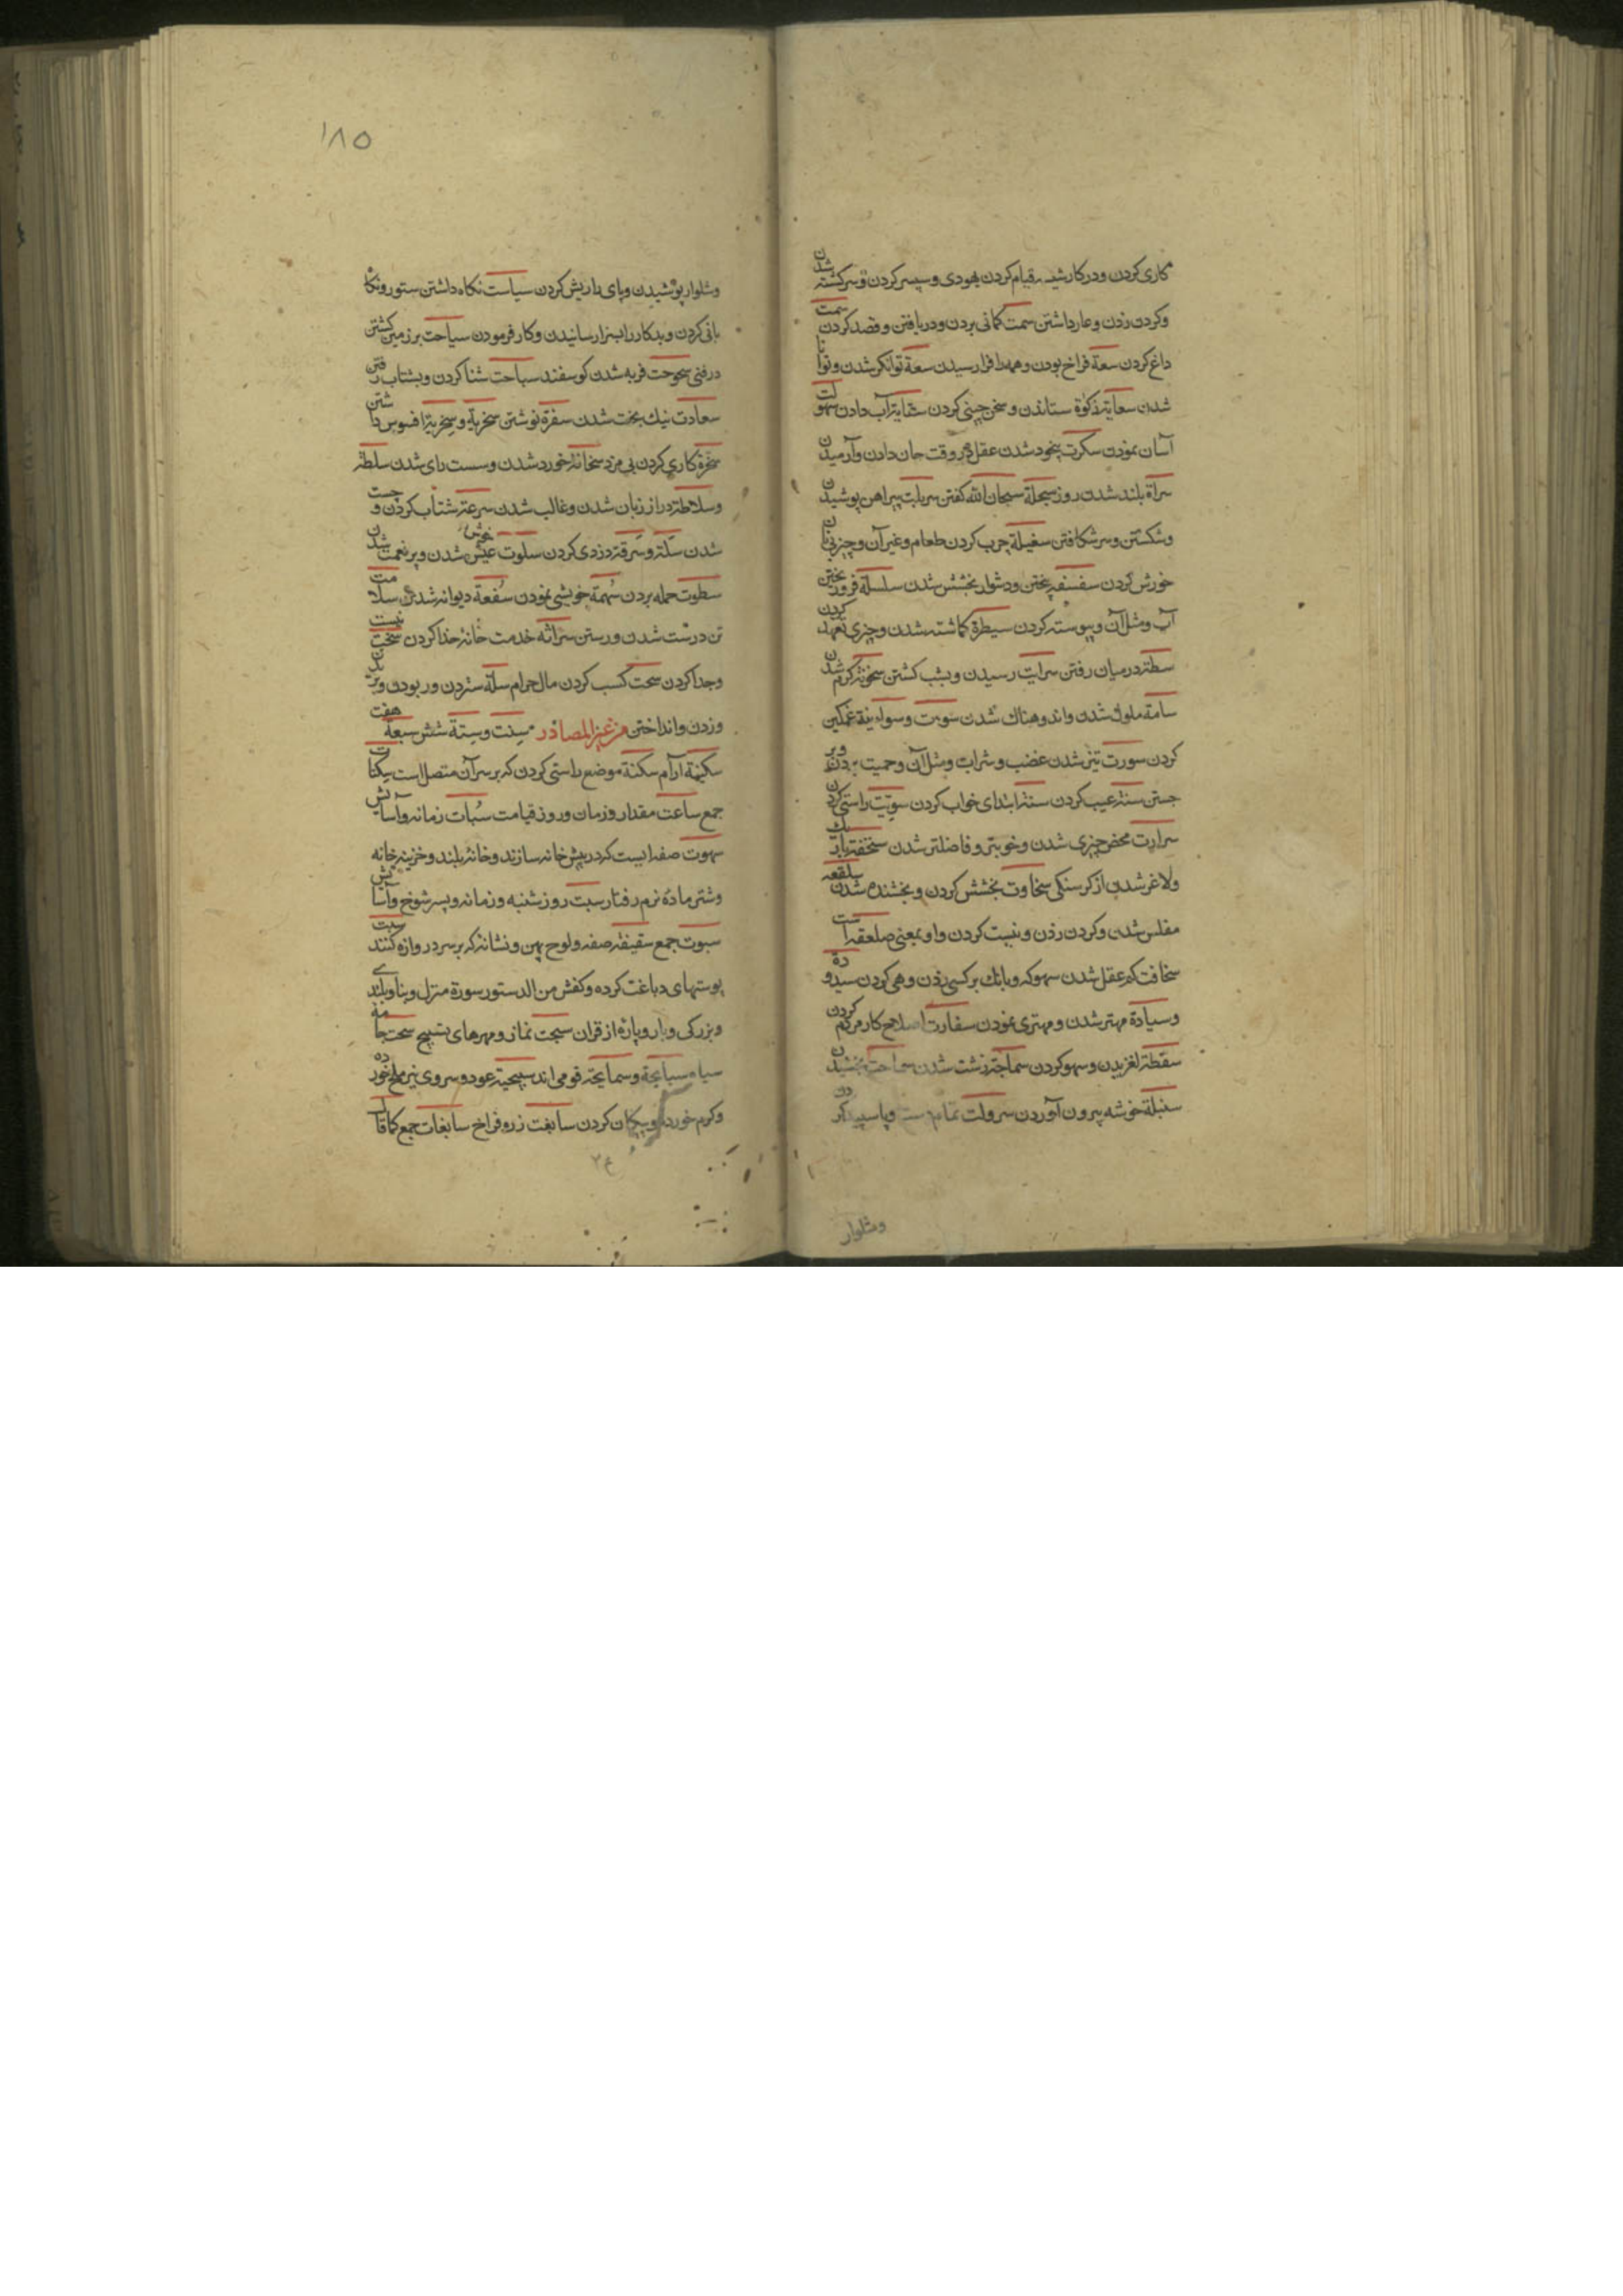 کاری کردن و در کار شدن قیام کردن یهودی و سپس کردن و سرکشته شدن
و کردن زدن و عار داشتن سمت کمانی بردن و دریافتن و قصد کردن سمت
داغ کردن سعة فراخ بودن و همه را فرا رسیدن سعة توانکر شدن و توانا
شدن سعایة زکوة ستاندن و سخن چینی کردن سقایة آب دادن سهولت
آسان نمودن سکرت بیخود شدن عقل در وقت جان دادن و آرمیدن
سراة بلند شدن روز سبحلة سبحان الله کفتن سربلت پیراهن پوشیدن
و شکستن و سر شکافتن سغبلة چرب کردن طعام و غیر آن و چیزی نان
خورش کردن سفسفه بیختن و دشوار بخشش شدن سلسلة فرو ریختن
آب و مثل آن و پیوسته کردن سیطرة کماشته شدن و چیزی تعهد کردن
سطة در میان رفتن سرایت رسیدن و بشب کشتن سخونة کرم شدن
سامة ملول شدن و اندوهناک شدن سوءت و سوایة غمکین
کردن سورت تیز شدن غضب و شراب و مثل آن و حمیت بردن و بر
جستن سنة عیب کردن سنة ابتدای خواب کردن سویت راستی کردن
سرارت محض چیزی شدن و خوبتر و فاضلتر شدن سخفة باریک
و لاغر شدن از کرسنکی سخاوت بخشش کردن و بخشنده شدن سلقعه
مفلس شدن و کردن زدن و نیست کردن و او بمعنی صلعقه است
سخافت کم عقل شدن سهوکه و بانک بر کسی زدن و هی کردن سیدوده
و سیادة مهتر شدن و مهتری نمودن سفارت اصلاح کار مردم کردن
سقطة لغزیدن و سهو کردن سماجة زشت شدن سماحت بخشیدن
سنبلة خوشه بیرون آوردن سرولت تمام دست و پا سپید کردن
و شلوار
۱۸۵
و شلوار پوشیدن و پای را ریش کردن سیاست نکاه داشتن ستور و نکاه
بانی کردن و بدکار را بسزا رسانیدن و کار فرمودن سیاحت بر زمین کشتن
در فنی سحوحت فربه شدن کوسفند سباحت شنا کردن و بشتاب رفتن
سعادت نیک بخت شدن سفرة نوشتن سخریة و سخریة افسوس داشتن
سخرة کاری کردن بی مزد سخانة خورد شدن و سست رای شدن سلطة
و سلاطة دراز زبان شدن و غالب شدن سرعة شتاب کردن و جست
شدن سلة و سرقة دزدی کردن سلوت عیش خوش شدن و پر نعمت شدن
سطوت حمله بردن سهمة خویشی نمودن سفعة دیوانه شدن سلامت
تن درست شدن و رستن سدانة خدمت خانه خدا کردن سخت نیست
و جدا کردن سحت کسب کردن مال حرام سلة ستردن و ربودن و بریدن
و زدن و انداختن من غیر المصادر ستت و ستة شش سبعة هفت
سکینة آرام سکنة موضع راستی کردن که بر سر آن متصل است سکنات
جمع ساعت مقدار و زمان و روز قیامت سبات زمانه و آسایش
سهوت صفه ایست که در پیش خانه سازند و خانه بلند و خزینه خانه
و شتر ماده نرم رفتار سبت روز شنبه و زمانه و پسر شوخ و آسایش
سبوت جمع سقیفة صفه و لوح پهن و نشانه که بر سر دروازه کنند سبت
پوستهای دباغت کرده و کفش من الدستور سورة منزل و بنا و بلندی
و بزرکی و بار و پاره از قرآن سبحت نماز و مهرهای تسبیح سحت جامه
سیاه سبابجة و سمابجة قومی اند سبیحیة عود و سروی نیز ملخ خورده
و کرم خورده و پیکان کردن سابغت زره فراخ سابغات جمع کما قال